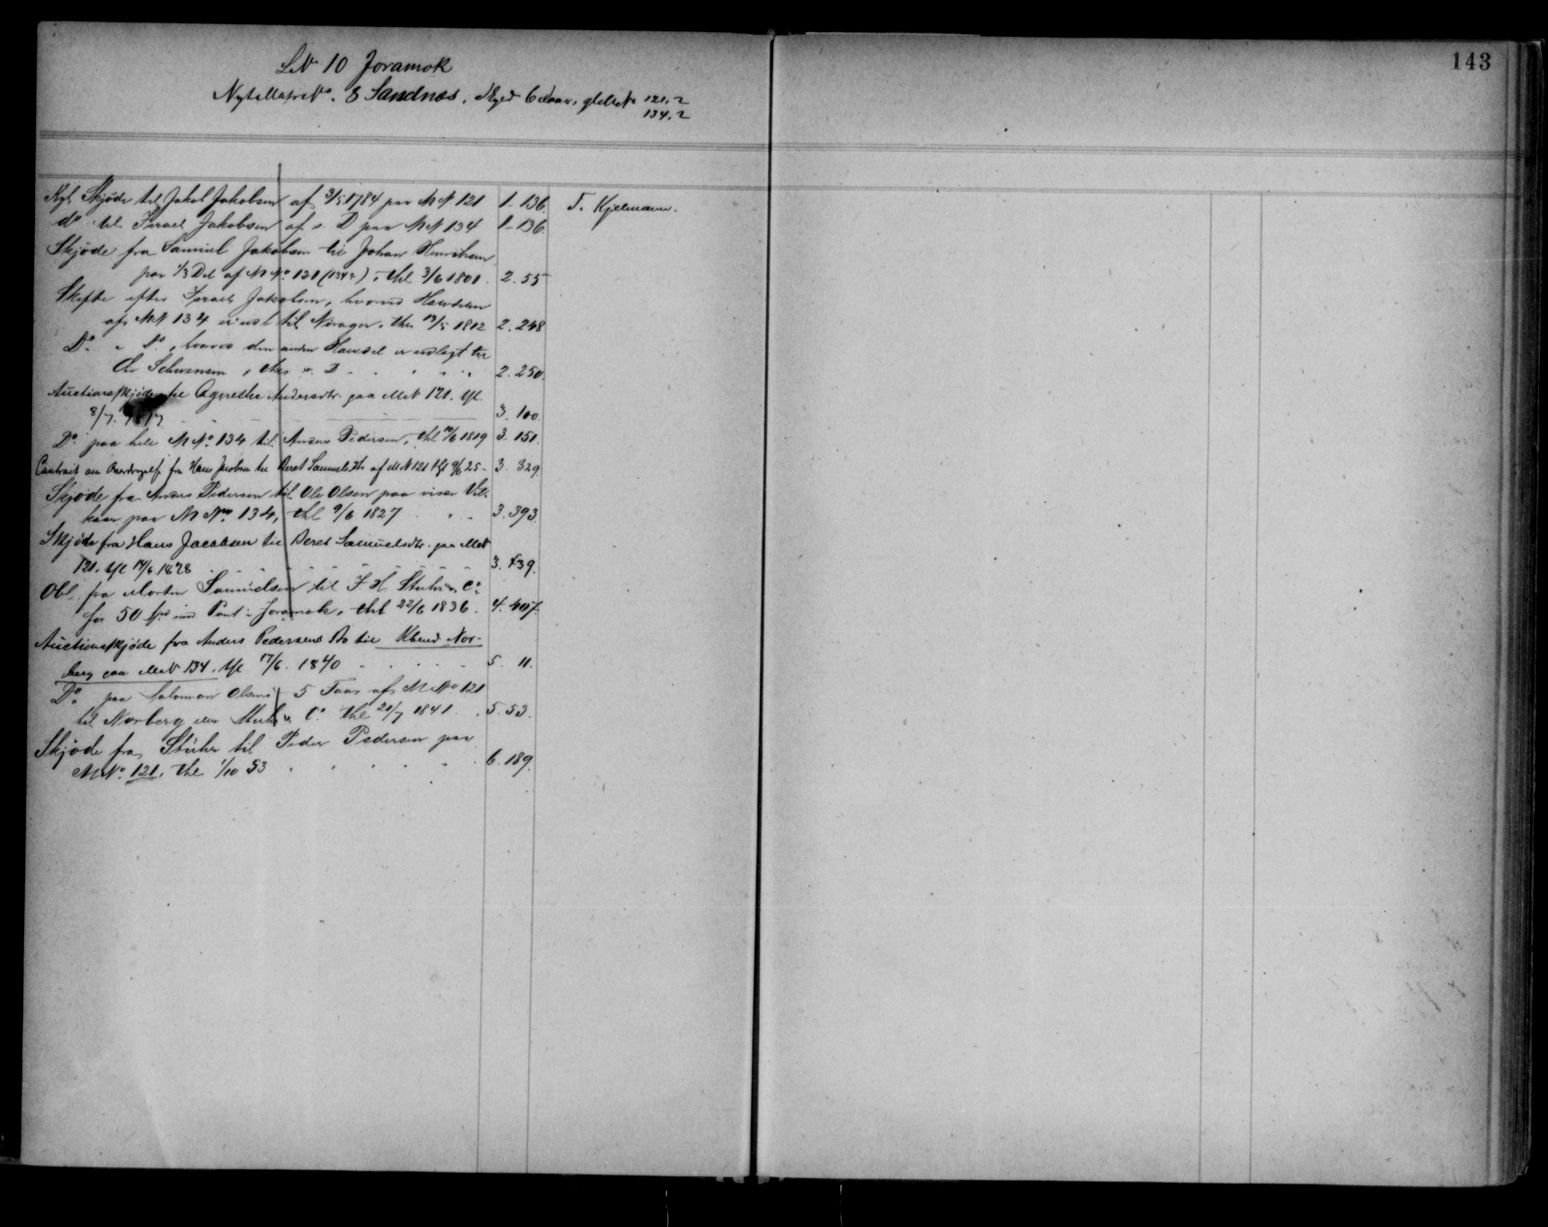 143
LN 10 Joramok
8 Sandnæs. Skyld 6 glMN 121.2
134.2
Kgl. Skjøde til Jakob Jakobsen af 3/5 1784 paa MN 121 1. 136. T. Kjelmann.
do til Israel Jakobsen af s. D paa MN 134 1-136
Skjøde fra Samuel Jakobsen til Johan Henriksen
paa 1/3 Del af MNo 121 (134?), thl 3/6 1801. 2. 55
Skifte efter Israel Jakobsen, hvorved Halvdelen
af MN 134 er udl til Norager, thl 19/5 1812 2. 248
Do. " Do., hvorved den anden Halvdel er udlagt til
Chr Sørensen, thl s. D 2. 250.
Auctionsskjøde til Agnethe Andersdtr. paa MN 121. thl
8/7. 1817 3. 100
Do. paa hele MNo. 134 til Anders Pedersen, thl 19/6 1819 3. 151.
Contract om Overdragelse fra Hans Jacobsen til Beret Samuelsdtr af MN 121 thl 9/6 25- 3. 329.
Skjøde fra Anders Pedersen til Ole Olsen paa visse Vil-
kaar paa MNo 134, thl 9/6 1827 3. 393.
Skjøde fra Hans Jacobsen til Beret Samuelsdtr. paa MN
121. thl 14/6 1828 3. 439.
Obl. fra Morten Samuelsen til F H Stuhr & Co
for 50 Spd imod Pant i Joramok, thl 22/6 1836. 4. 407.
Auctionsskjøde fra Anders Pedersens Bo til Kbmd Nor-
berg paa MN 134. thl 17/6. 1840 5. 11.
Do. paa Salomon Olsens 5 Faar af MNo 121
til Norberg eller Stuhr & Co. thl 21/7 1841. 5. 53.
Skjøde fra Stuhr til Peder Pedersen paa
MNo. 121. thl 1/10 53 6. 189.